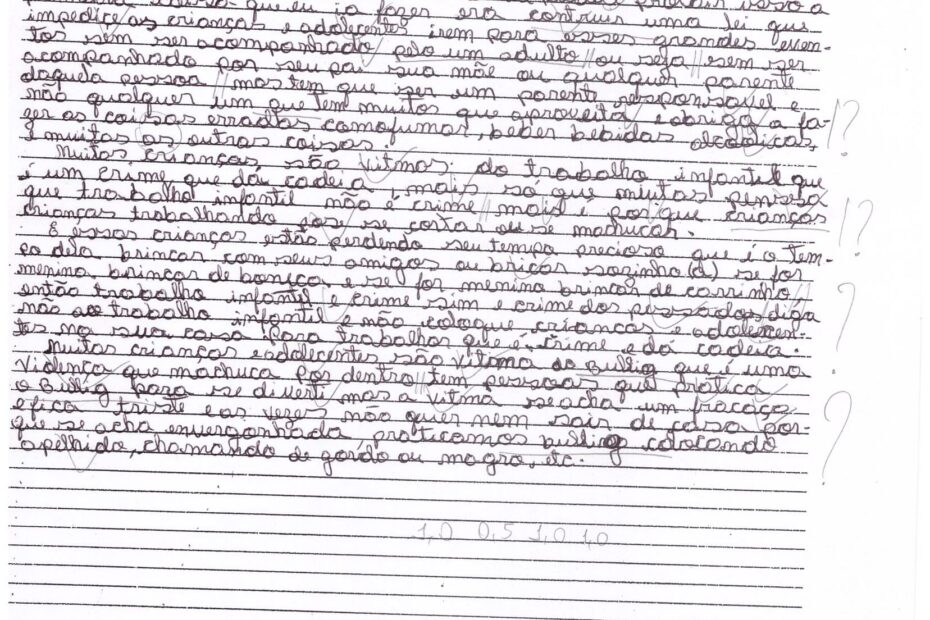 que eu ia fazer era contruir uma lei que
impediçe as crianças e adolecentes irem para esses grandes even-
tos sem ser acompanhado pelo um adulto ou seja sem ser
acompanhado por seu pai sua mãe ou qualquer parente
daquela pessoa mas tem que ser um parente responsavel e
não qualquer um que tem muitos que aproveita e obriga a fa-
zer as coisas erradas comofumar, beber bebidas alcoolicas,
E muitas (as) outras coisas.
Muitas crianças são vitmas do trabalho infantil que
é um crime que dá cadeia, mais só que muitas penssa
que trabalho infantil não é crime mais é por que crianças
crianças trabalhando pose se cortar ou se machucar.
E essas crianças estão perdendo seu tempo precioso que é o tem-
po dela brincar com seus amigos ou bricar sozinho(a) se for
menina brincar de boneca e se for menino brincar de carrinho
então trabalho infantil é crime sim e crime dos pessados diga
não ao trabalho infantil e não coloque crianças e adolecen-
tes na sua casa para trabalhar que é crime e dá cadeia.
Muitas crianças e adolecentes são vitma do Bullig que é uma
vidença que machuca por dentro tem pessoas que pratica
o Bullig para se diverti mas a vitma se acha um fracaço
e fica triste e as vezes não quer nem sair de casa por-
que se acha envergonhada, praticamos bulling colocando
apelhido, chamando de gordo ou magro, etc.
1,0 0,5 1,0 1,0